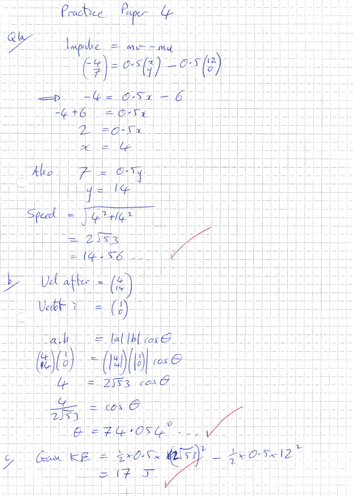 Practice Paper 4
Q1a Impulse = mv - mu
(-4 7) = 0.5(x y) - 0.5(12 0)
⇒ -4 = 0.5x - 6
-4+6 = 0.5x
2 = 0.5x
x = 4
Also 7 = 0.5y
y = 14
Speed = √4²+14²
= 2√53
= 14.56 ...
b/ Vel after = (4 14)
Vector i = (1 0)
a.b = |a||b| cosθ
(4 14)(1 0) = |(4 14)||(1 0)| cosθ
4 = 2√53 cosθ
4/2√53 = cosθ
θ = 74.054° ...
c/ Gain KE = ½×0.5×(2√53)² - ½×0.5×12²
= 17 J